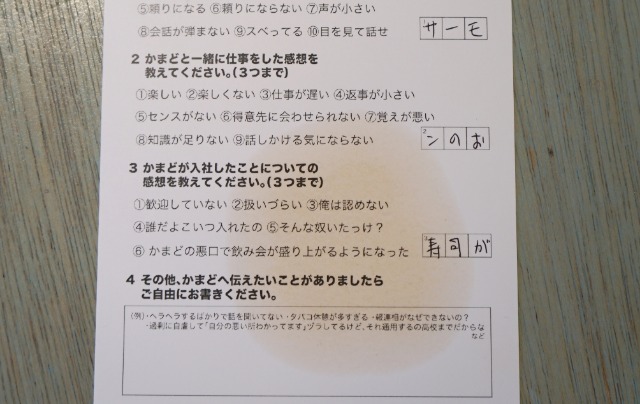 ⑤頼りになる ⑥頼りにならない ⑦声が小さい
⑧会話が弾まない ⑨スベってる ⑩目を見て話せ
サーモ
2 かまどと一緒に仕事をした感想を
教えてください。(3つまで)
①楽しい ②楽しくない ③仕事が遅い ④返事が小さい
⑤センスがない ⑥得意先に会わせられない ⑦覚えが悪い
⑧知識が足りない ⑨話しかける気にならない
ンのお
3 かまどが入社したことについての
感想を教えてください。(3つまで)
①歓迎していない ②扱いづらい ③俺は認めない
④誰だよこいつ入れたの ⑤そんな奴いたっけ?
⑥ かまどの悪口で飲み会が盛り上がるようになった
寿司が
4 その他、かまどへ伝えたいことがありましたら
ご自由にお書きください。
(例)・ヘラヘラするばかりで話を聞いてない ・タバコ休憩が多すぎる ・報連相がなぜできないの?
・過剰に自虐して「自分の悪い所わかってます」ヅラしてるけど、それ通用するの高校までだからな
など